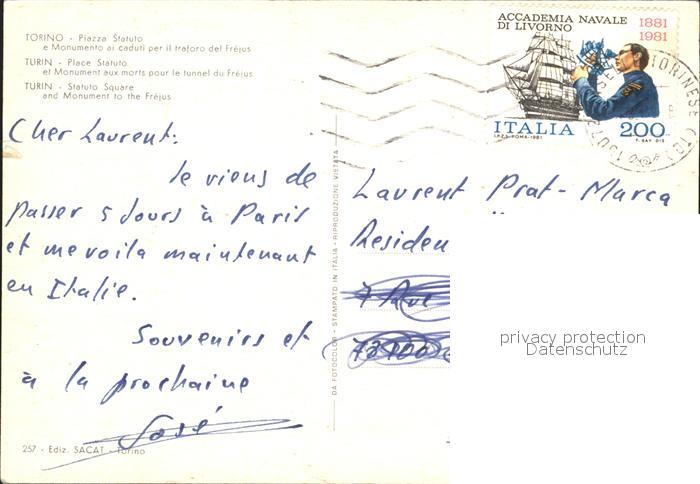 TORINO - Piazza Statuto
e Monumento ai caduti per il traforo del Fréjus
TURIN - Place Statuto
et Monument aux morts pour le tunnel du Fréjus
TURIN - Statuto Square
and Monument to the Fréjus
Cher Laurent:
Je viens de
passer 5 jours à Paris
et me voila maintenant
en Italie.
Souvenirs et
à la prochaine
José
257 - Ediz. SACAT - Torino
DA FOTOCOLOR - STAMPATO IN ITALIA - RIPRODUZIONE VIETATA
ACCADEMIA NAVALE
DI LIVORNO
1881
1981
ITALIA 200
I.P.Z.S. ROMA - 1981
Laurent Prat-Marca
Residen
7 Ave
privacy protection
Datenschutz